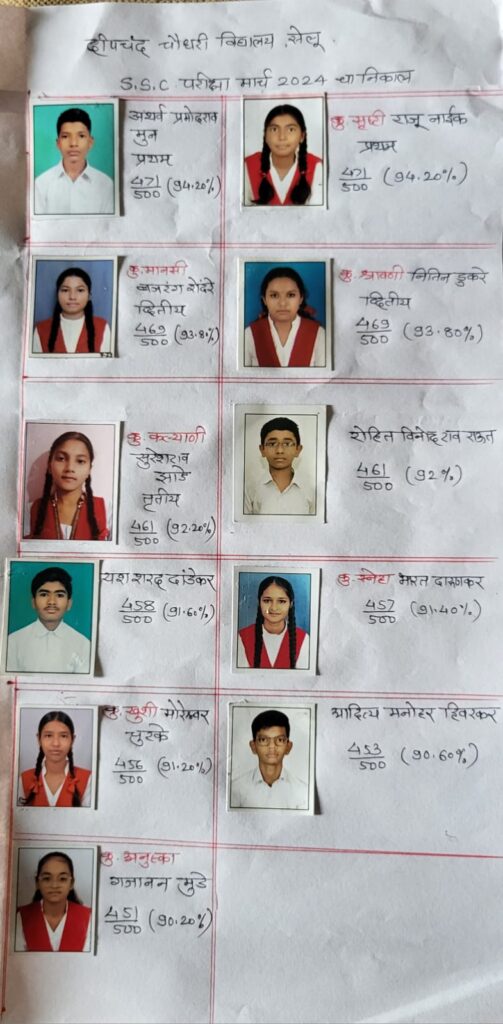 दीपचंद चौधरी विद्यालय सेलू.
S.S.C परीक्षा मार्च 2024 चा निकाल
अथर्व प्रमोदराव
मुन
प्रथम
471/500 (94.20%)
कु. सृष्टी राजू नाईक
प्रथम
471/500 (94.20%)
कु. मानसी
बजरंग शेंदरे
द्वितीय
469/500 (93.80%)
कु. श्रावणी नितिन डुकरे
द्वितीय
469/500 (93.80%)
कु. कल्याणी
सुरेशराव
झाडे
तृतीय
461/500 (92.20%)
रोहित विनोदराव राऊत
461/500 (92%)
यश शरद दांडेकर
458/500 (91.60%)
कु. स्नेहा भारत
457/500 (91.40%)
कु. खुशी मोरेश्वर
सुरके
456/500 (91.20%)
आदित्य मनोहर हिवरकर
453/500 (90.60%)
कु. अनुष्का
गजानन मुडे
451/500 (90.20%)